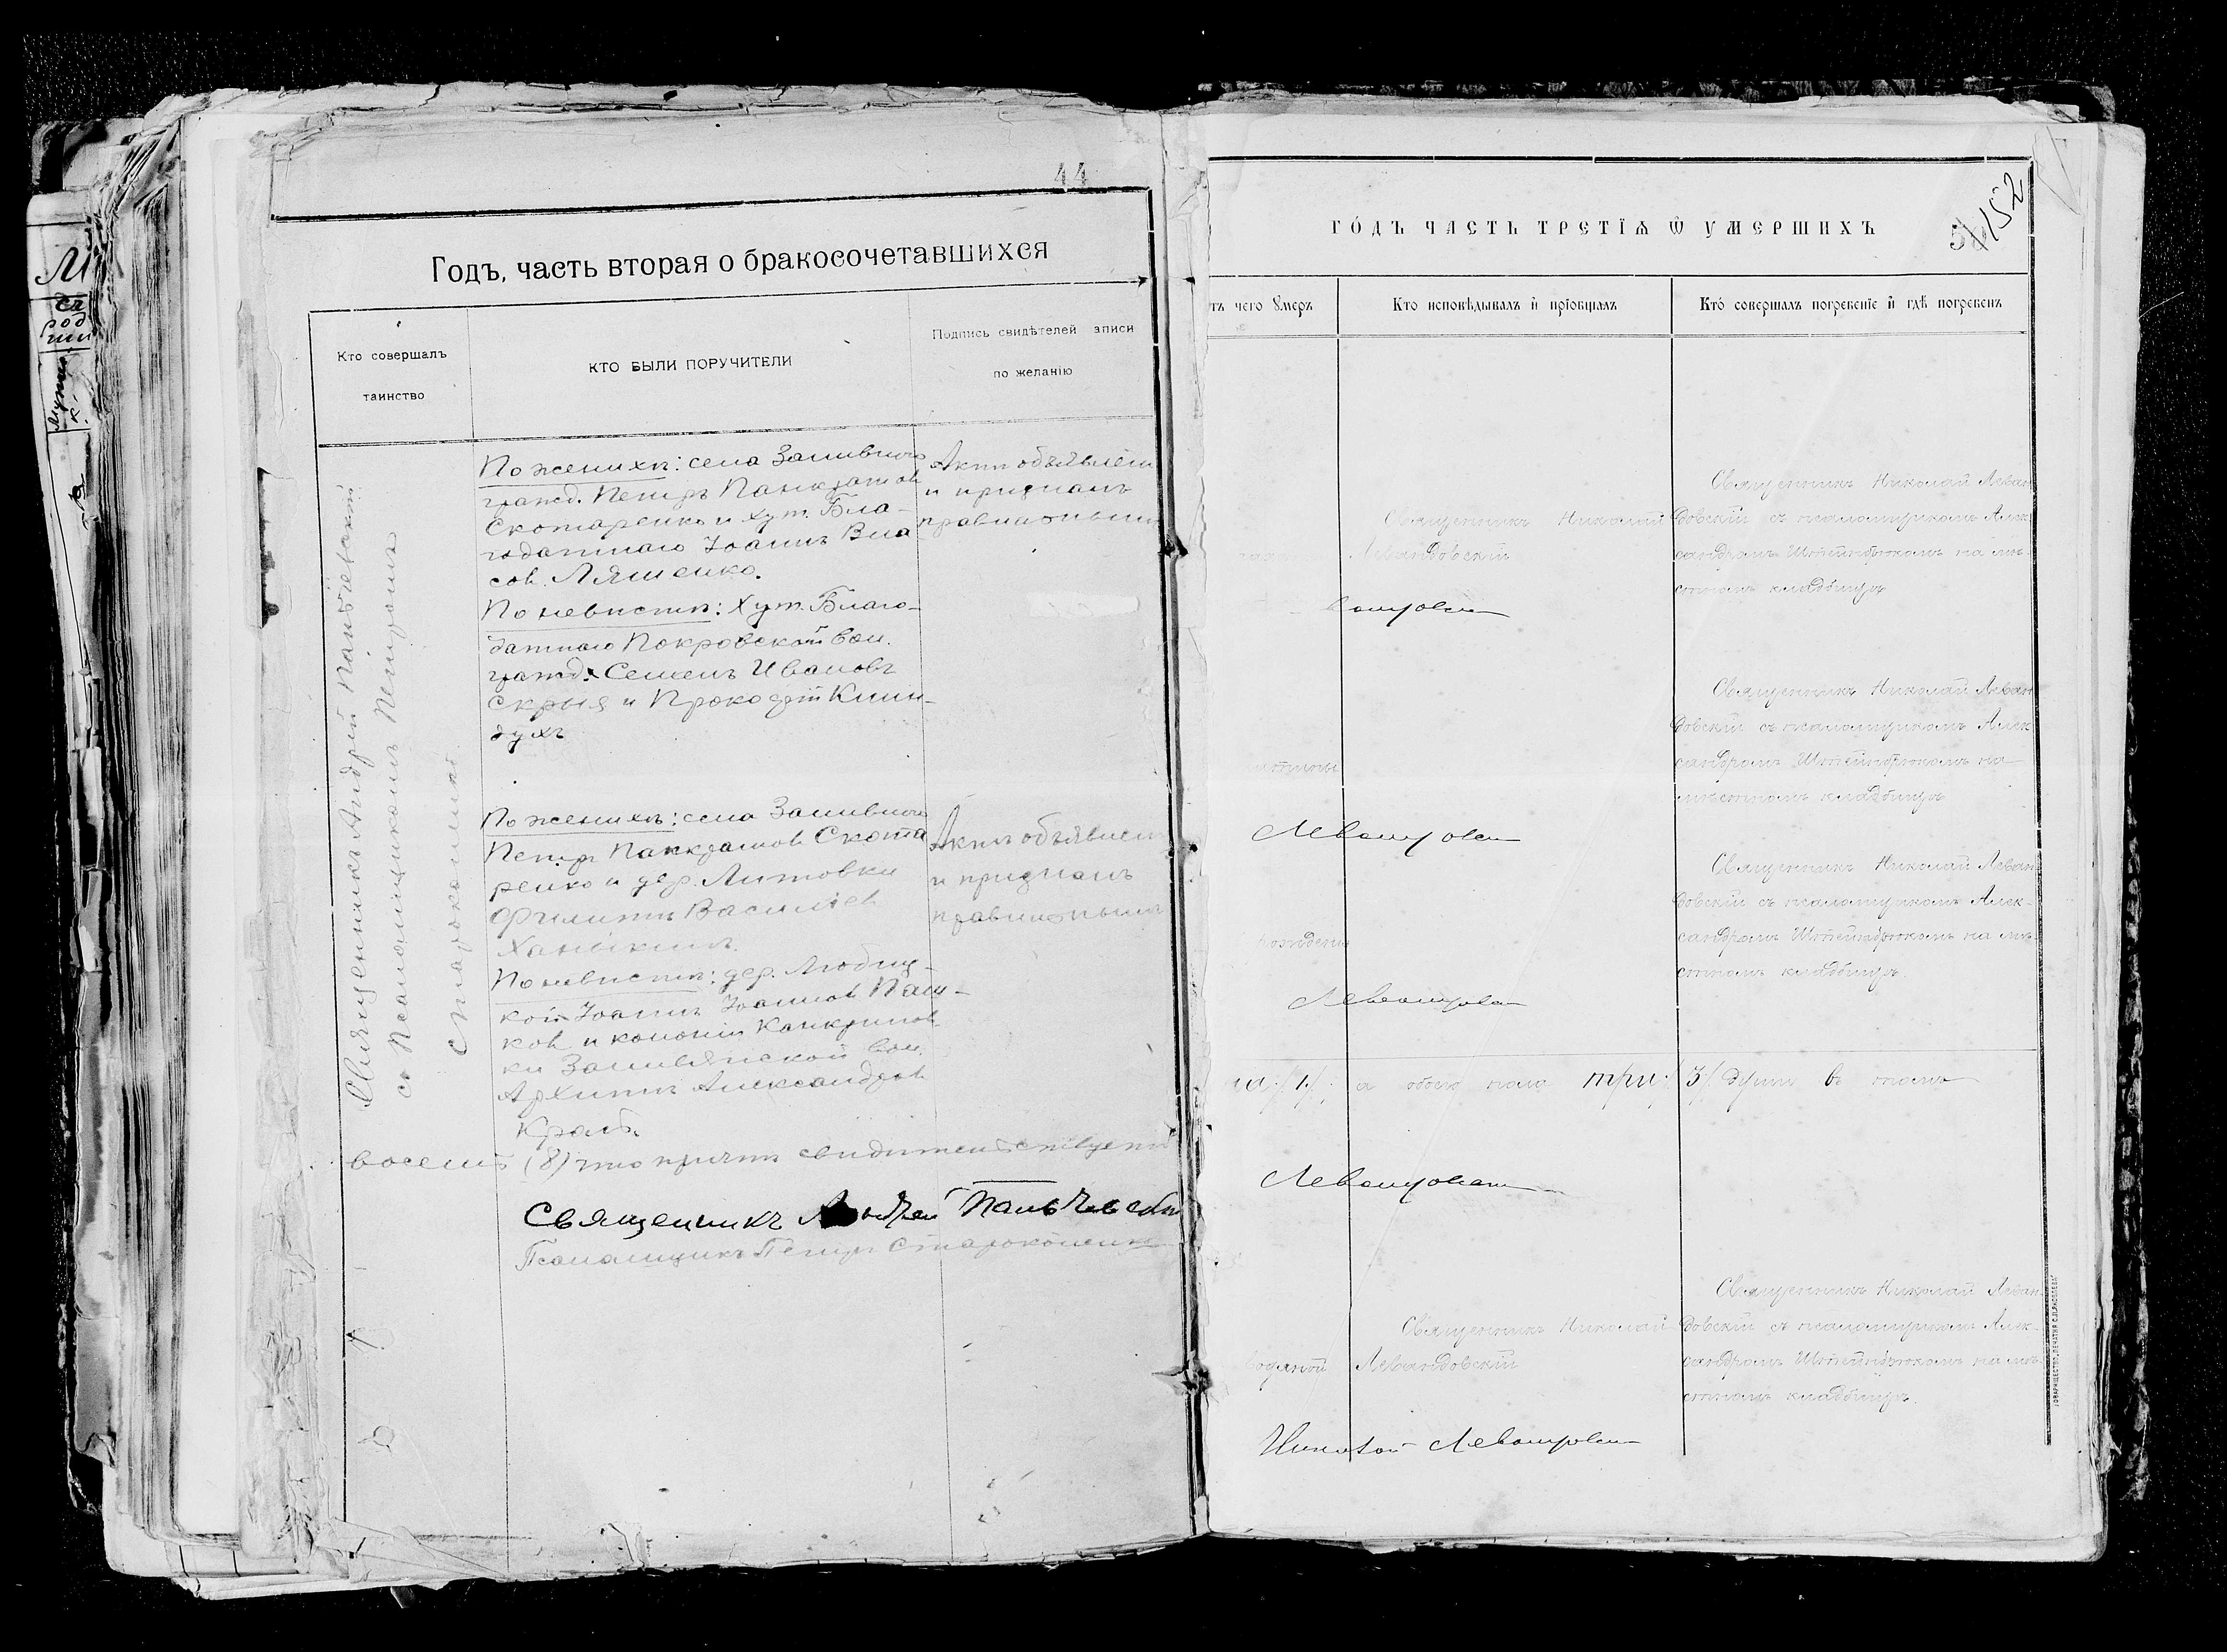 44
Годъ, часть вторая о бракосочетавшихся
Кто совершалъ
таинство
КТО БЫЛИ ПОРУЧИТЕЛИ
Подпись свидѣтелей записи
по желанію
Священникъ Андрей Пальчевскій
съ Псаломщикомъ Петромъ
По женихѣ: села Заливного
гражд. Петръ Панкратов
Скотаренко и хут. Бла-
годатнаго Іоаннъ Вла
сов. Ляшенко.
По невѣстѣ: Хут. Благо-
датнаго Покровской вол.
гражд. Семенъ Ивановъ
Скрыя и Прокофій
Актъ объявленъ
и признанъ
правильнымъ
По женихѣ: села Заливного
Петръ Панкратов Скота
ренко и дер. Литовки
Филиппъ Василіев
По невѣстѣ: дер. Любиц-
кой Іоаннъ Іоаннов Паш-
ков и колоніи Канкринов
ки вол.
Архипъ Александров
Актъ объявленъ
и признанъ
правильнымъ
восемь (8) что причтъ свидѣтельствуетъ
Священникъ Андрей Пальчевскій
Псаломщикъ Петръ
ГОДЪ ЧАСТЬ ТРЕТІЯ Ѿ УМЕРШИХЪ
152
тъ чего Умеръ
Кто исповѣдывалъ и пріобщалъ
Кто совершалъ погребеніе и гдѣ погребенъ
Священникъ Николай
Левандовскій
Священникъ Николай Леван
довскій съ псаломщикомъ Алек
сандромъ Штейнбрюкомъ на мѣ-
стномъ кладбищѣ
Священникъ Николай Леван
довскій съ псаломщикомъ Алек
сандромъ Штейнбрюкомъ на
мѣстномъ кладбищѣ
Левандовскій
Священникъ Николай Леван
довскій съ псаломщикомъ Алек-
сандромъ Штейнбрюкомъ на мѣ-
стномъ кладбищѣ.
Левандовскій
/1/ а обоего пола три /3/ души въ томъ
Левандовскій
Священникъ Николай
Левандовскій
Священникъ Николай Леван
довскій съ псаломщикомъ Алек-
сандромъ Штейнбрюкомъ на мѣ-
стномъ кладбищѣ.
Николай Левандовскій